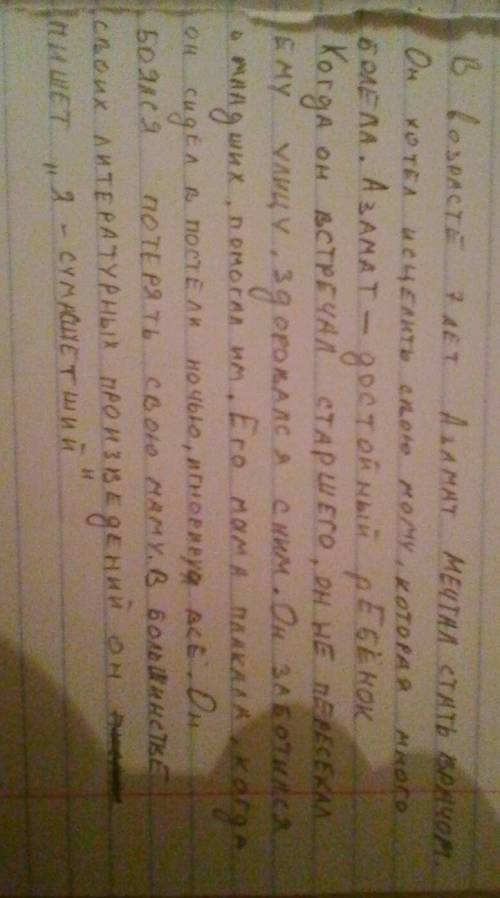 В возрасте 7 лет Азамат мечтал стать врачом.
Он хотел исцелить свою маму, которая много
болела. Азамат – достойный ребёнок
Когда он встречал старшего, он не пересекал
ему улицу, здоровался с ним. Он заботился
о младших, помогал им. Его мама плакала, когда
он сидел в постели ночью, игнорируя всё. Он
боялся потерять свою маму. В большинстве
своих литературных произведений он
пишет „Я – сумашетший"